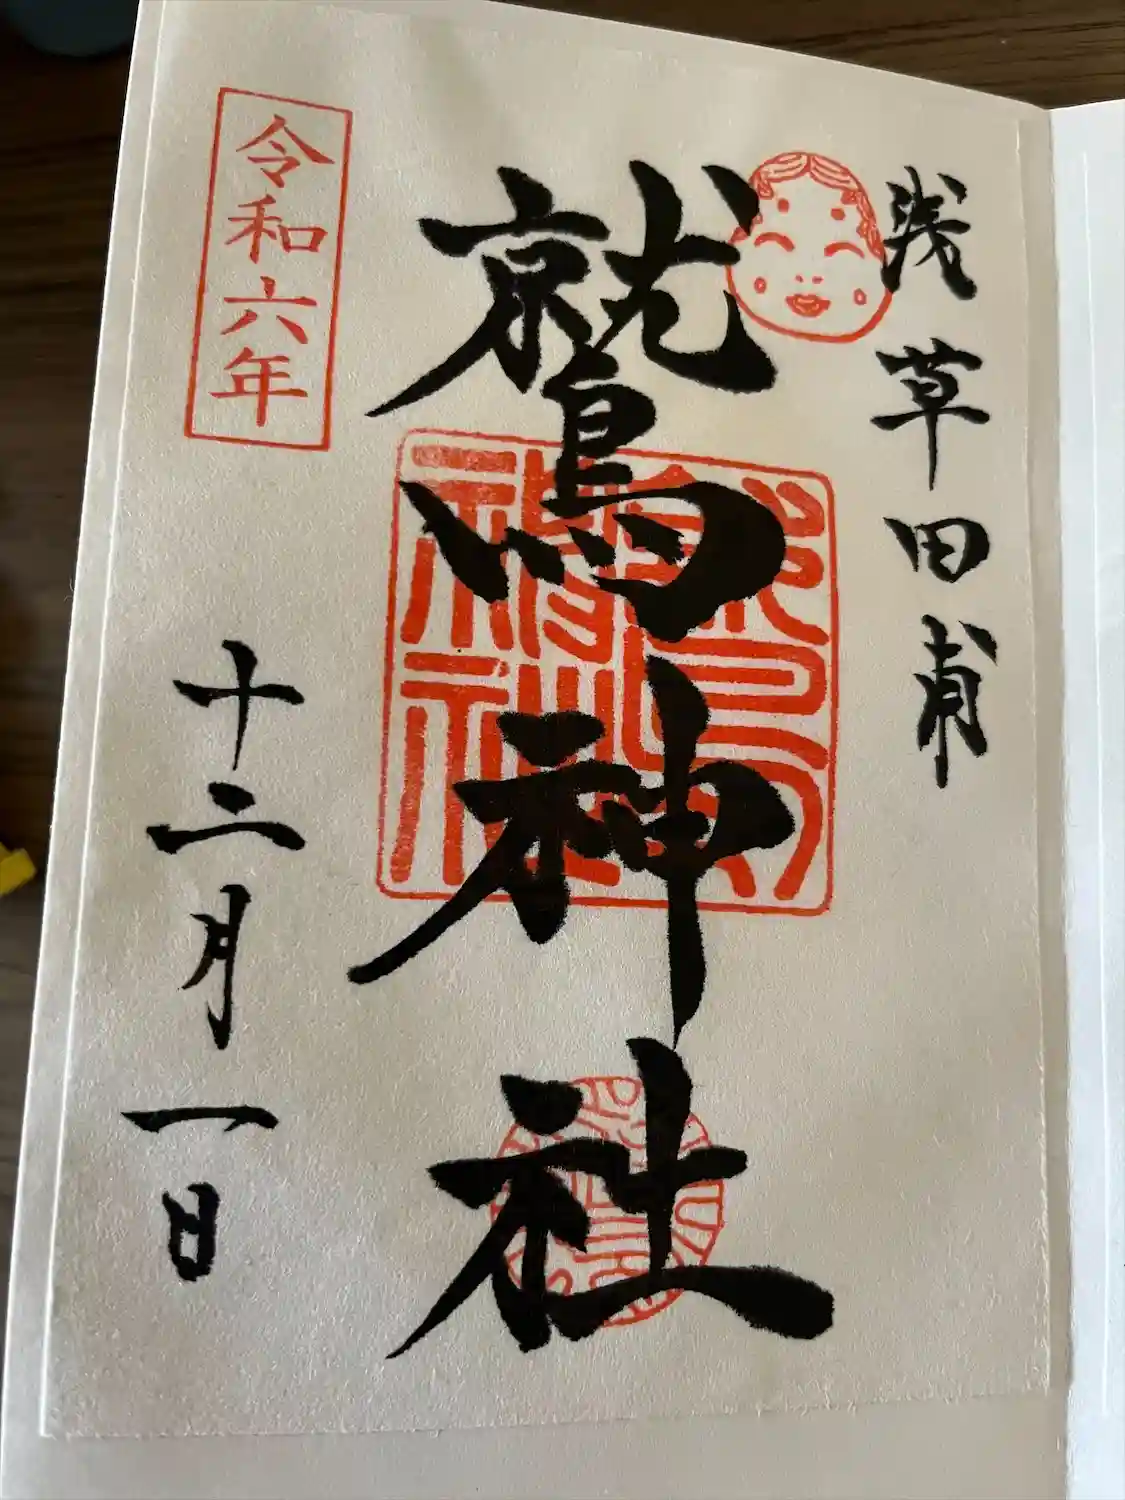 浅草田甫
鷲神社
令和六年
十二月一日